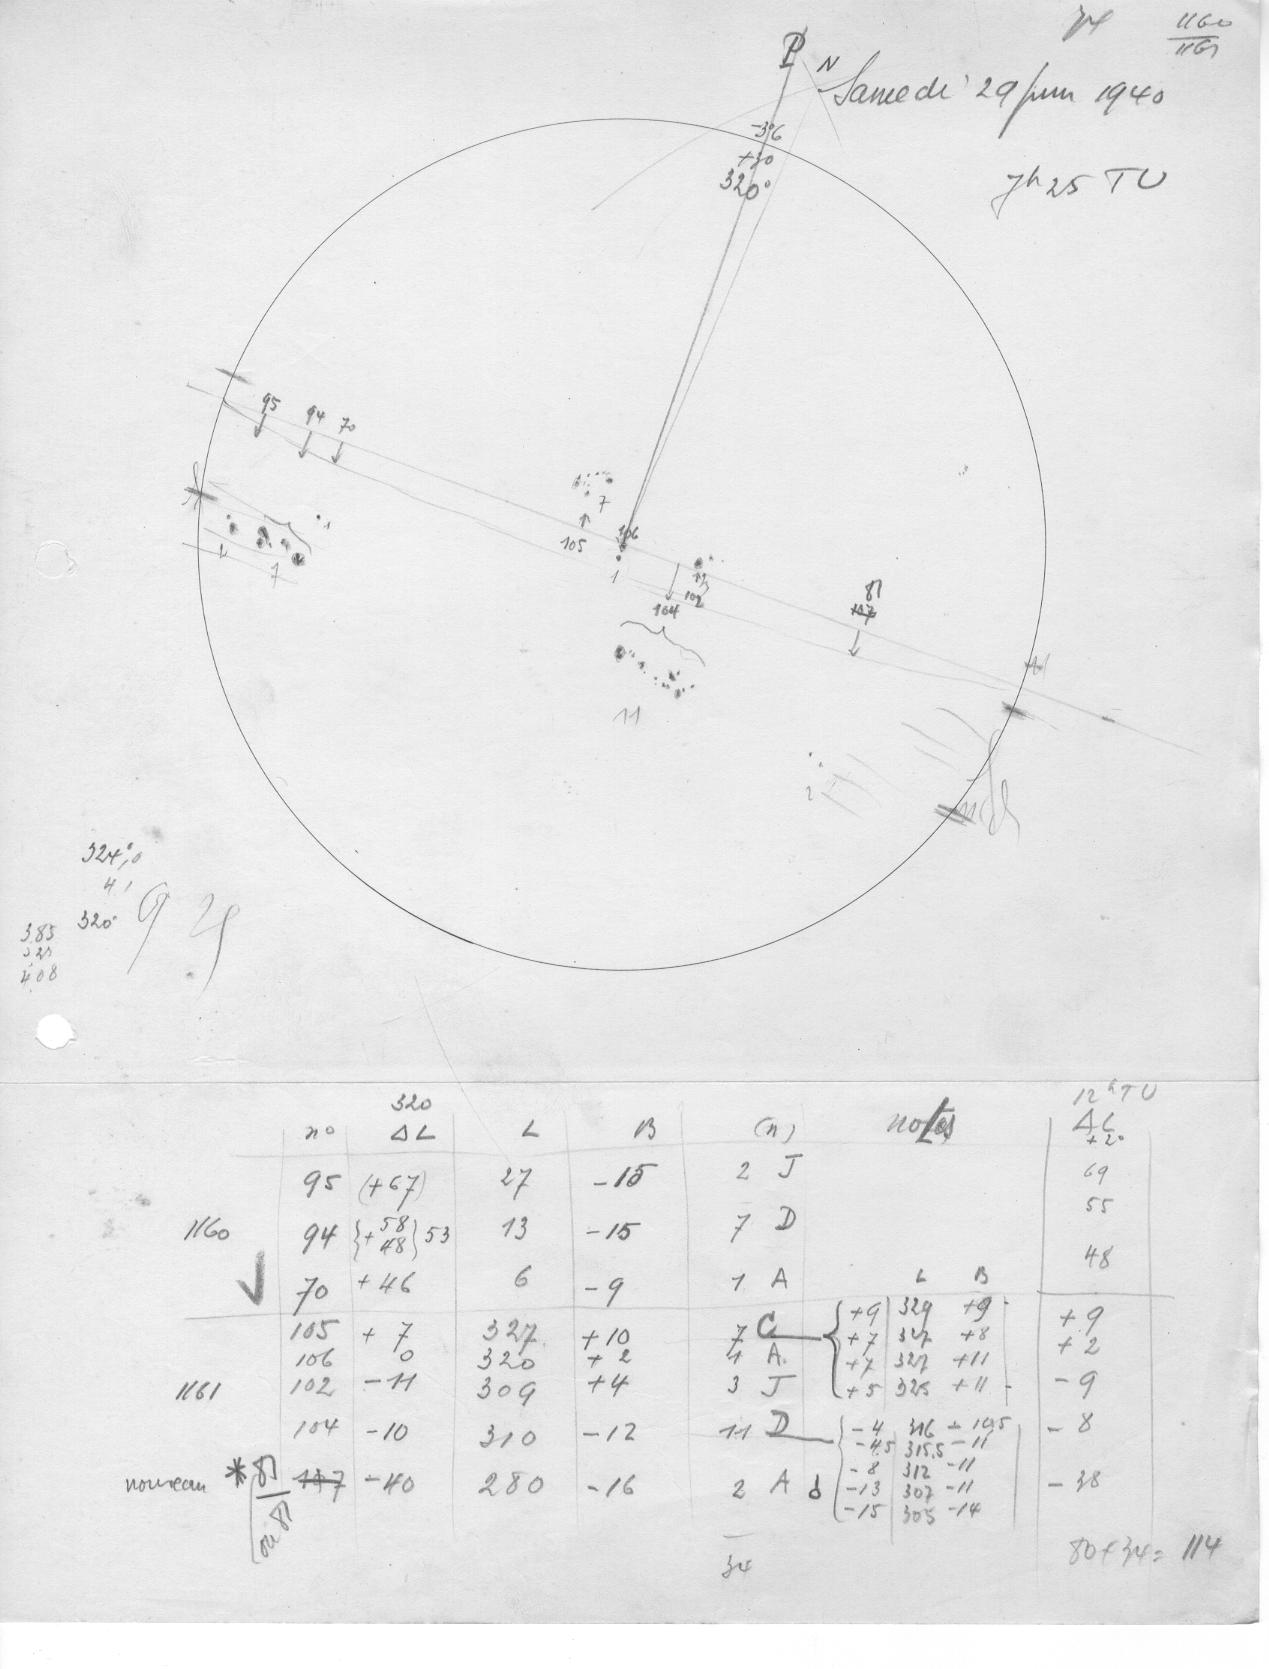 34
1160
1161
P
N
Samedi 29 Juin 1940
7h 25 TU
-3,6
+30
320°
95
94
70
7
105
106
1
102
104
81
107
1
4
7
11
2
324°,0
4,1
320°
3.85
4.08
320
n° ΔL L B (n) notes
12h TU
ΔL
+2°
95 (+67) 27 -15 2 J 69
1160 94 {+58 48} 53 13 -15 7 D 55
70 +46 6 -9 1 A 48
L B
105 +7 327 +10 7 C +9
106 0 320 +2 1 A. +2
1161 102 -11 309 +4 3 J -9
104 -10 310 -12 11 D -8
nouveau * 81 107 -40 280 -16 2 A d -38
ou 81
+9 329 +9
+7 327 +8
+7 327 +11
+5 325 +11
-4 316 -10,5
-4.5 315.5 -11
-8 312 -11
-13 307 -11
-15 305 -14
34
80+34= 114